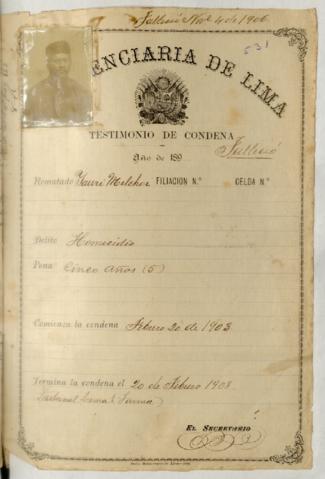 Falleció Nbre 4 de 1906.
531
ENCIARIA DE LIMA
TESTIMONIO DE CONDENA
Año de 189
Falleció
Rematado Yauri Melchor FILIACION N.° CELDA N.°
Delito Homicidio
Pena Cinco años (5)
Comienza la condena Febrero 20 de 1903
Termina la condena el 20 de Febrero 1908
Tribunal
EL SECRETARIO